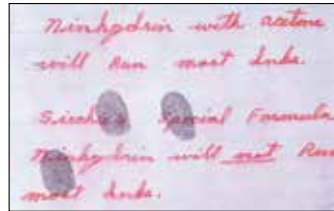 Ninhydrin with acetone
will Run most Inks.
Special Formula
Ninhydrin will not Run
most Inks.